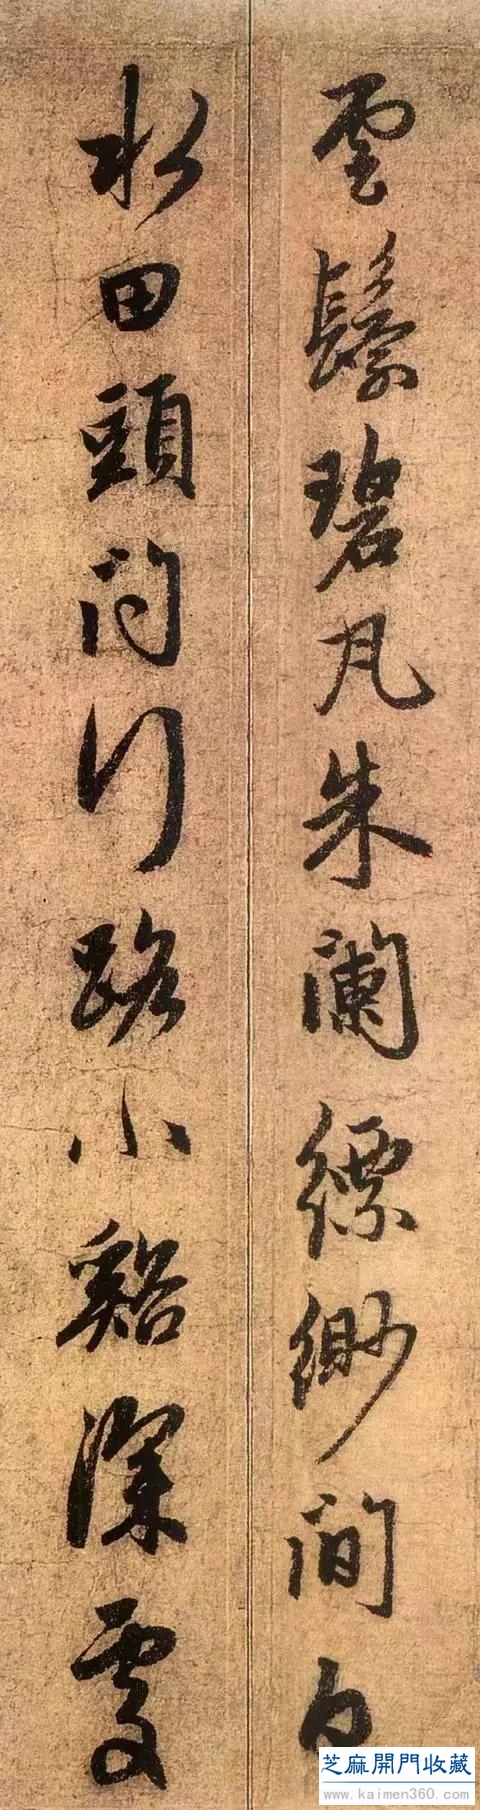 雲鬟碧瓦朱闌縹緲間白
水田頭問行路小谿深處
芝麻開門收藏
www.kaimen360.com